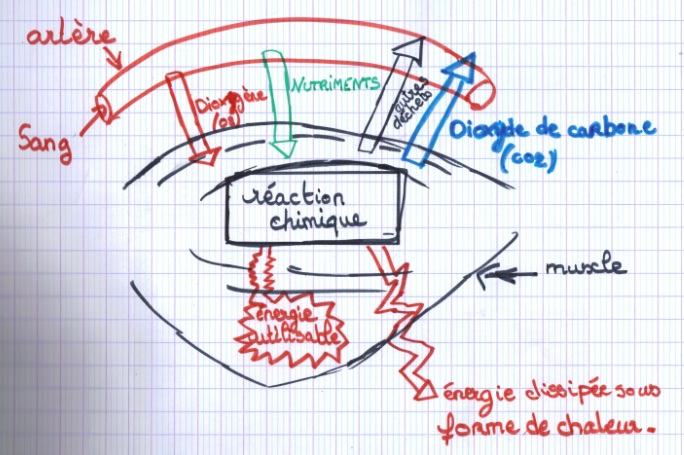 artère
Sang
Dioxygène
(O2)
NUTRIMENTS
autres
déchets
Dioxyde de carbone
(CO2)
réaction
chimique
muscle
énergie
utilisable
énergie dissipée sous
forme de chaleur.